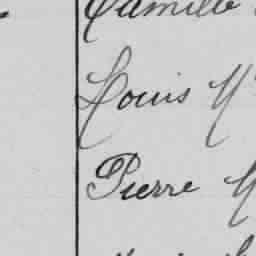 Camille
Louis M
Pierre M